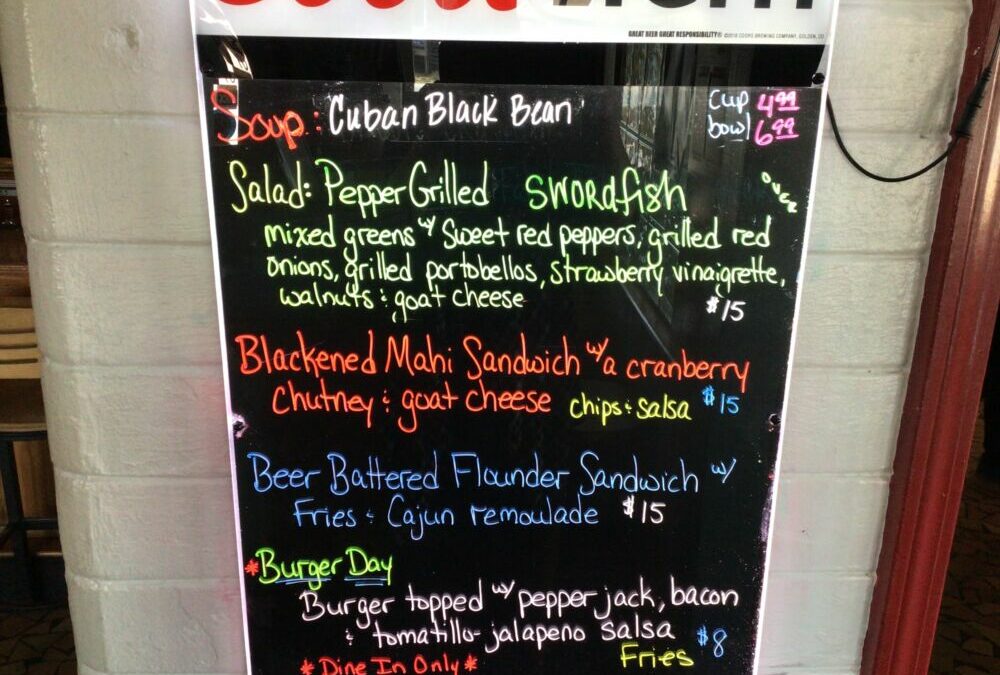 GREAT BEER GREAT RESPONSIBILITY® ©2018 COORS BREWING COMPANY, GOLDEN, CO
Soup: Cuban Black Bean cup 4.99
bowl 6.99
Salad: Pepper Grilled swordfish over
mixed greens w/ sweet red peppers, grilled red
onions, grilled portobellos, strawberry vinaigrette,
walnuts & goat cheese $15
Blackened Mahi Sandwich w/ a cranberry
chutney & goat cheese chips & salsa $15
Beer Battered Flounder Sandwich w/
Fries & Cajun remoulade $15
*Burger Day
Burger topped w/ pepper jack, bacon
& tomatillo-jalapeno salsa $8
*Dine In Only* Fries